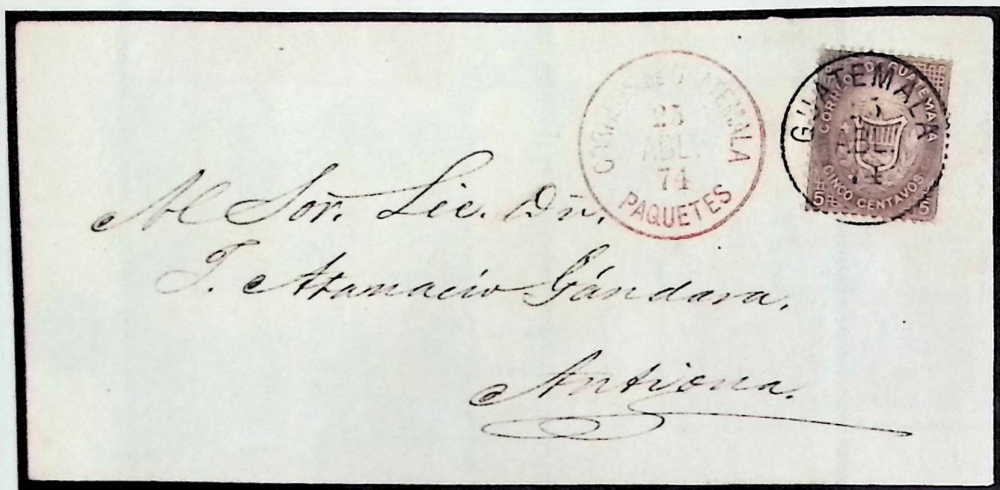 CORREOS DE GUATEMALA
23
ABL.
74
PAQUETES
GUATEMALA
ABL.
74
CORREO DE GUATEMALA
CINCO CENTAVOS
5 5
Al Sor. Lic. Dn.
J. Atanacio Gándara.
Antigua.